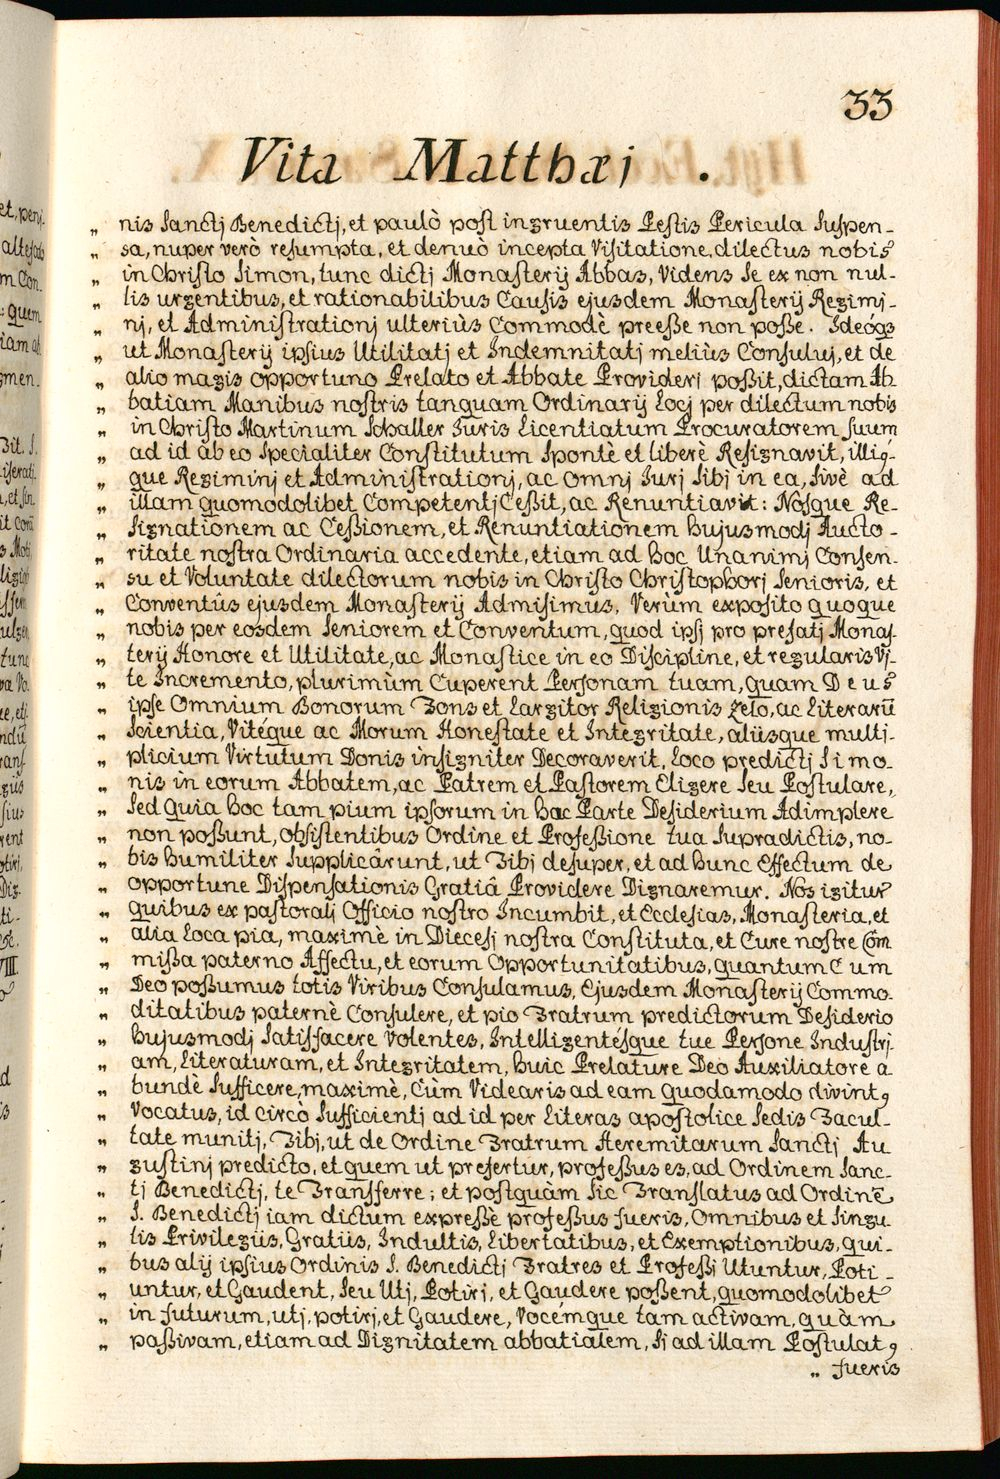 33
Vita Matthæj.
„ nis Sanctj Benedictj, et paulò post ingruentis Pestis Pericula Suspen-
„ sa, nuper verò resumpta, et denuò incepta Visitatione, dilectus nobis
„ in Christo Simon, tunc dictj Monasterij Abbas, Videns Se ex non nul-
„ lis urgentibus, et rationabilibus Causis ejusdem Monasterij Regimj-
„ nj, et Administrationj ulteriùs Commodè preeße non poße. Ideóqs
„ ut Monasterij ipsius Utilitatj et Indemnitatj meliùs Consuluj, et de
„ alio magis opportuno Prelato et Abbate Providerj poßit, dictam Ab
„ batiam Manibus nostris tanquam Ordinarij Locj per dilectum nobis
„ in Christo Martinum Schaller Juris Licentiatum Procuratorem suum
„ ad id ab eo Specialiter Constitutum Spontè et liberè Resignavit, illiq-
„ que Regiminj et Administrationj, ac omnj Jurj Sibj in ea, Sivè ad
„ illam quomodolibet CompetentjCeßit, ac Renuntiavit: Nosque Re-
„ signationem ac Ceßionem, et Renuntiationem hujusmodj Aucto-
„ ritate nostra Ordinaria accedente, etiam ad hoc Unanimj Consen-
„ su et Voluntate dilectorum nobis in Christo Christophorj Senioris, et
„ Conventûs ejusdem Monasterij Admisimus, Verùm exposito quoque
„ nobis per eosdem Seniorem et Conventum, quod ipsj pro prefatj Monas-
„ terij Honore et Utilitate, ac Monastice in eo Discipline, et regularis Vj-
„ te Incremento, plurimùm Cuperent Personam tuam, quam Deus
„ ipse Omnium Bonorum Fons et Largitor Religionis zelo, ac Literarū
„ Scientia, Vitéque ac Morum Honestate et Integritate, aliisque multj-
„ plicium Virtutum Donis insigniter Decoraverit, Loco predictj Simo-
„ nis in eorum Abbatem, ac Patrem et Pastorem Eligere Seu Postulare,
„ Sed quia hoc tam pium ipsorum in hac Parte Desiderium Adimplere
„ non poßunt, obsistentibus Ordine et Profeßione tua Supradictis, no-
„ bis humiliter Supplicârunt, ut Tibj desuper, et ad hunc Effectum de
„ opportune Dispensationis Gratiâ Providere Dignaremur. Nos igitur
„ quibus ex pastoralj Officio nostro Incumbit, et Ecclesias, Monasteria, et
„ alia Loca pia, maximè in Diecesj nostra Constituta, et Cure nostre Com
„ mißa paterno Affectu, et eorum Opportunitatibus, quantum Cum
„ Deo poßumus totis Viribus Consulamus, Ejusdem Monasterij Commo-
„ ditatibus paternè Consulere, et pio Fratrum predictorum Desiderio
„ hujusmodj Satisfacere Volentes, Intelligentésque tue Persone Industrj-
„ am, Literaturam, et Integritatem, huic Prelature Deo Auxiliatore a
„ bundè Sufficere, maximè, Cùm Videaris ad eam quodamodo divint9
„ Vocatus, id circò Sufficientj ad id per Literas apostolice Sedis Facul-
„ tate munitj, Tibj, ut de Ordine Fratrum Heremitarum Sanctj Au
„ gustinj predicto, et quem ut prefertur, profeßus es, ad Ordinem Sanc-
„ tj Benedictj, te Transferre; et postquàm Sic Translatus ad Ordinē
„ S. Benedictj iam dictum expreßè profeßus fueris, Omnibus et Singu
„ lis Privilegiis, Gratiis, Indultis, Libertatibus, et Exemptionibus, qui-
„ bus alij ipsius Ordinis S. Benedictj Fratres et Profeßj Utuntur, Poti-
„ untur, et Gaudent, Seu Utj, Potirj, et Gaudere poßent, quomodolibet
„ in futurum, utj, potirj, et Gaudere, Vocémque tam activam, quàm
„ paßivam, etiam ad Dignitatem abbatialem, Si ad illam Postulat9
„ fueris